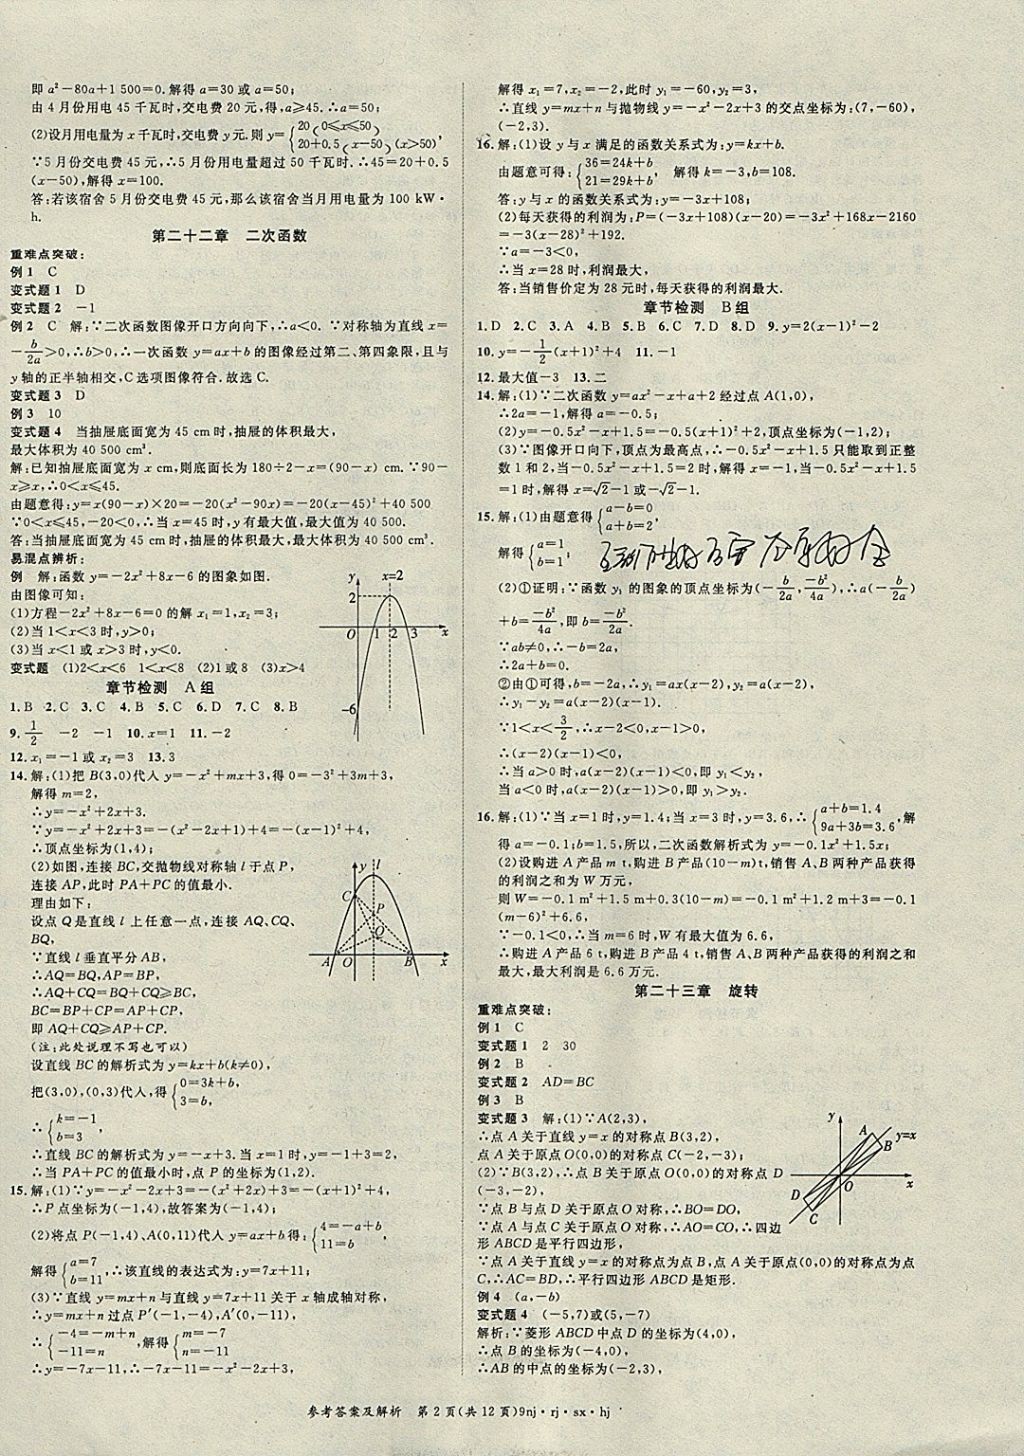 即 a²-80a+1 500=0. 解得 a=30 或 a=50;
由 4 月份用电 45 千瓦时,交电费 20 元,得,a⩾45. ∴a=50;
(2)设月用电量为 x 千瓦时,交电费 y 元. 则 y={20(0⩽x⩽50) 20+0.5(x-50)(x>50)
∵5 月份交电费 45 元,∴5 月份用电量超过 50 千瓦时. ∴45=20+0.5
(x-50),解得 x=100.
答:若该宿舍 5 月份交电费 45 元,那么该宿舍当月用电量为 100 kW·
h.
第二十二章 二次函数
重难点突破:
例 1 C
变式题 1 D
变式题 2 -1
例 2 C 解:∵二次函数图像开口方向向下,∴a<0. ∵对称轴为直线 x=
-b/2a>0,∴b>0,∴一次函数 y=ax+b 的图像经过第二、第四象限,且与
y 轴的正半轴相交,C 选项图像符合. 故选 C.
变式题 3 D
例 3 10
变式题 4 当抽屉底面宽为 45 cm 时,抽屉的体积最大,
最大体积为 40 500 cm³.
解:已知抽屉底面宽为 x cm,则底面长为 180÷2-x=(90-x) cm. ∵90-
x⩾x,∴0<x⩽45.
由题意得:y=x(90-x)×20=-20(x²-90x)=-20(x-45)²+40 500
∵0<x⩽45,-20<0,∴当 x=45 时,y 有最大值,最大值为 40 500.
答:当抽屉底面宽为 45 cm 时,抽屉的体积最大,最大体积为 40 500 cm³.
易混点辨析:
例 解:函数 y=-2x²+8x-6 的图象如图.
由图像可知:
(1)方程-2x²+8x-6=0 的解 x₁=1,x₂=3;
(2)当 1<x<3 时,y>0;
(3)当 x<1 或 x>3 时,y<0.
变式题 (1)2<x<6 1<x<8 (2)1 或 8 (3)x>4
y x=2
2
O 1 2 3 x
-6
章节检测 A 组
1. B 2. C 3. C 4. B 5. C 6. D 7. C 8. B
9. 1/2 -2 -1 10. x=1 11. -2
12. x₁=-1 或 x₂=3 13. 3
14. 解:(1)把 B(3,0)代人 y=-x²+mx+3,得 0=-3²+3m+3,
解得 m=2,
∴y=-x²+2x+3.
∵y=-x²+2x+3=-(x²-2x+1)+4=-(x-1)²+4,
∴顶点坐标为(1,4);
(2)如图,连接 BC,交抛物线对称轴 l 于点 P,
连接 AP,此时 PA+PC 的值最小.
理由如下:
设点 Q 是直线 l 上任意一点,连接 AQ、CQ、
BQ,
∵直线 l 垂直平分 AB,
∴AQ=BQ,AP=BP,
∴AQ+CQ=BQ+CQ⩾BC,
BC=BP+CP=AP+CP,
即 AQ+CQ⩾AP+CP.
(注:此处说理不写也可以)
y l
C P
Q
A O B x
设直线 BC 的解析式为 y=kx+b(k≠0),
把(3,0),(0,3)代人,得{0=3k+b, 3=b,
∴{k=-1 b=3,
∴直线 BC 的解析式为 y=-x+3. 当 x=1 时,y=-1+3=2,
∴当 PA+PC 的值最小时,点 P 的坐标为(1,2).
15. 解:(1)∵y=-x²-2x+3=-(x²+2x)+3=-(x+1)²+4,
∴P 点坐标为(-1,4),故答案为(-1,4);
(2)将点 P(-1,4)、A(0,11)代人 y=ax+b 得:{4=-a+b 11=b,
解得{a=7 b=11,∴该直线的表达式为:y=7x+11;
(3)∵直线 y=mx+n 与直线 y=7x+11 关于 x 轴成轴对称,
∴y=mx+n 过点 P′(-1,-4),A′(0,-11),
∴{-4=-m+n, -11=n,解得{m=-7 n=-11
∴y=-7x-11,∴-7x-11=-x²-2x+3,
解得 x₁=7,x₂=-2,此时 y₁=-60,y₂=3,
∴直线 y=mx+n 与抛物线 y=-x²-2x+3 的交点坐标为:(7,-60),
(-2,3).
16. 解:(1)设 y 与 x 满足的函数关系式为:y=kx+b.
由题意可得:{36=24k+b 21=29k+b, 解得 k=-3,b=108.
答:y 与 x 的函数关系式为:y=-3x+108;
(2)每天获得的利润为:P=(-3x+108)(x-20)=-3x²+168x-2160
=-3(x-28)²+192.
∵a=-3<0,
∴当 x=28 时,利润最大,
答:当销售价定为 28 元时,每天获得的利润最大.
章节检测 B 组
1. D 2. C 3. A 4. B 5. B 6. C 7. D 8. D 9. y=2(x-1)²-2
10. y=-1/2(x+1)²+4 11. -1
12. 最大值-3 13. 二
14. 解:(1)∵二次函数 y=ax²-x+a+2 经过点 A(1,0),
∴2a=-1,解得 a=-0.5;
(2)y=-0.5x²-x+1.5=-0.5(x+1)²+2,顶点坐标为(-1,2);
(3)∵图像开口向下,顶点为最高点,∴-0.5x²-x+1.5 只能取到正整
数 1 和 2,当-0.5x²-x+1.5=2 时,解得 x=-1,当-0.5x²-x+1.5
=1 时,解得 x=√2-1 或-√2-1.
15. 解:(1)由题意得{a-b=0 a+b=2,
解得{a=1 b=1;
(2)①证明:∵函数 y₁ 的图象的顶点坐标为(-b/2a, -b²/4a),∴a(-b/2a)
+b=-b²/4a,即 b=-b²/2a.
∵ab≠0,∴-b=2a,
∴2a+b=0.
②由①可得,b=-2a,∴y₁=ax(x-2),y₂=a(x-2),
∴y₁-y₂=a(x-2)(x-1).
∵1<x<3/2,∴x-2<0,x-1>0,
∴(x-2)(x-1)<0,
∴当 a>0 时,a(x-2)(x-1)<0,即 y₁<y₂,
当 a<0 时,a(x-2)(x-1)>0,即 y₁>y₂.
16. 解:(1)∵当 x=1 时,y=1.4;当 x=3 时,y=3.6,∴{a+b=1.4 9a+3b=3.6,解
得 a=-0.1;b=1.5,所以,二次函数解析式为 y=-0.1x²+1.5x;
(2)设购进 A 产品 m t,购进 B 产品(10-m)t,销售 A、B 两种产品获得
的利润之和为 W 万元,
则 W=-0.1 m²+1.5 m+0.3(10-m)=-0.1 m²+1.2 m+3=-0.1
(m-6)²+6.6,
∵-0.1<0,∴当 m=6 时,W 有最大值为 6.6,
∴购进 A 产品 6 t,购进 B 产品 4 t,销售 A、B 两种产品获得的利润之和
最大,最大利润是 6.6 万元.
第二十三章 旋转
重难点突破:
例 1 C
变式题 1 2 30
例 2 B
变式题 2 AD=BC
例 3 B
变式题 3 解:(1)∵A(2,3),
∴点 A 关于直线 y=x 的对称点 B(3,2),
∴点 A 关于原点 O(0,0)的对称点 C(-2,-3);
(2)∵B(3,2),∴点 B 关于原点 O(0,0)的对称点 D
(-3,-2),
∵点 B 与点 D 关于原点 O 对称,∴BO=DO,
∵点 A 与点 C 关于原点 O 对称,∴AO=CO,∴四边
形 ABCD 是平行四边形,
∵点 A 关于直线 y=x 的对称点为点 B,点 A 关于原点(0,0)的对称点为点
C,∴AC=BD,∴平行四边形 ABCD 是矩形.
y
A y=x
B
O x
D
C
例 4 (a,-b)
变式题 4 (-5,7)或(5,-7)
解析:∵菱形 ABCD 中点 D 的坐标为(4,0),
∴点 B 的坐标为(-4,0),
∴AB 的中点的坐标为(-2,3),
参考答案及解析 第 2 页(共 12 页)9nj·rj·sx·hj